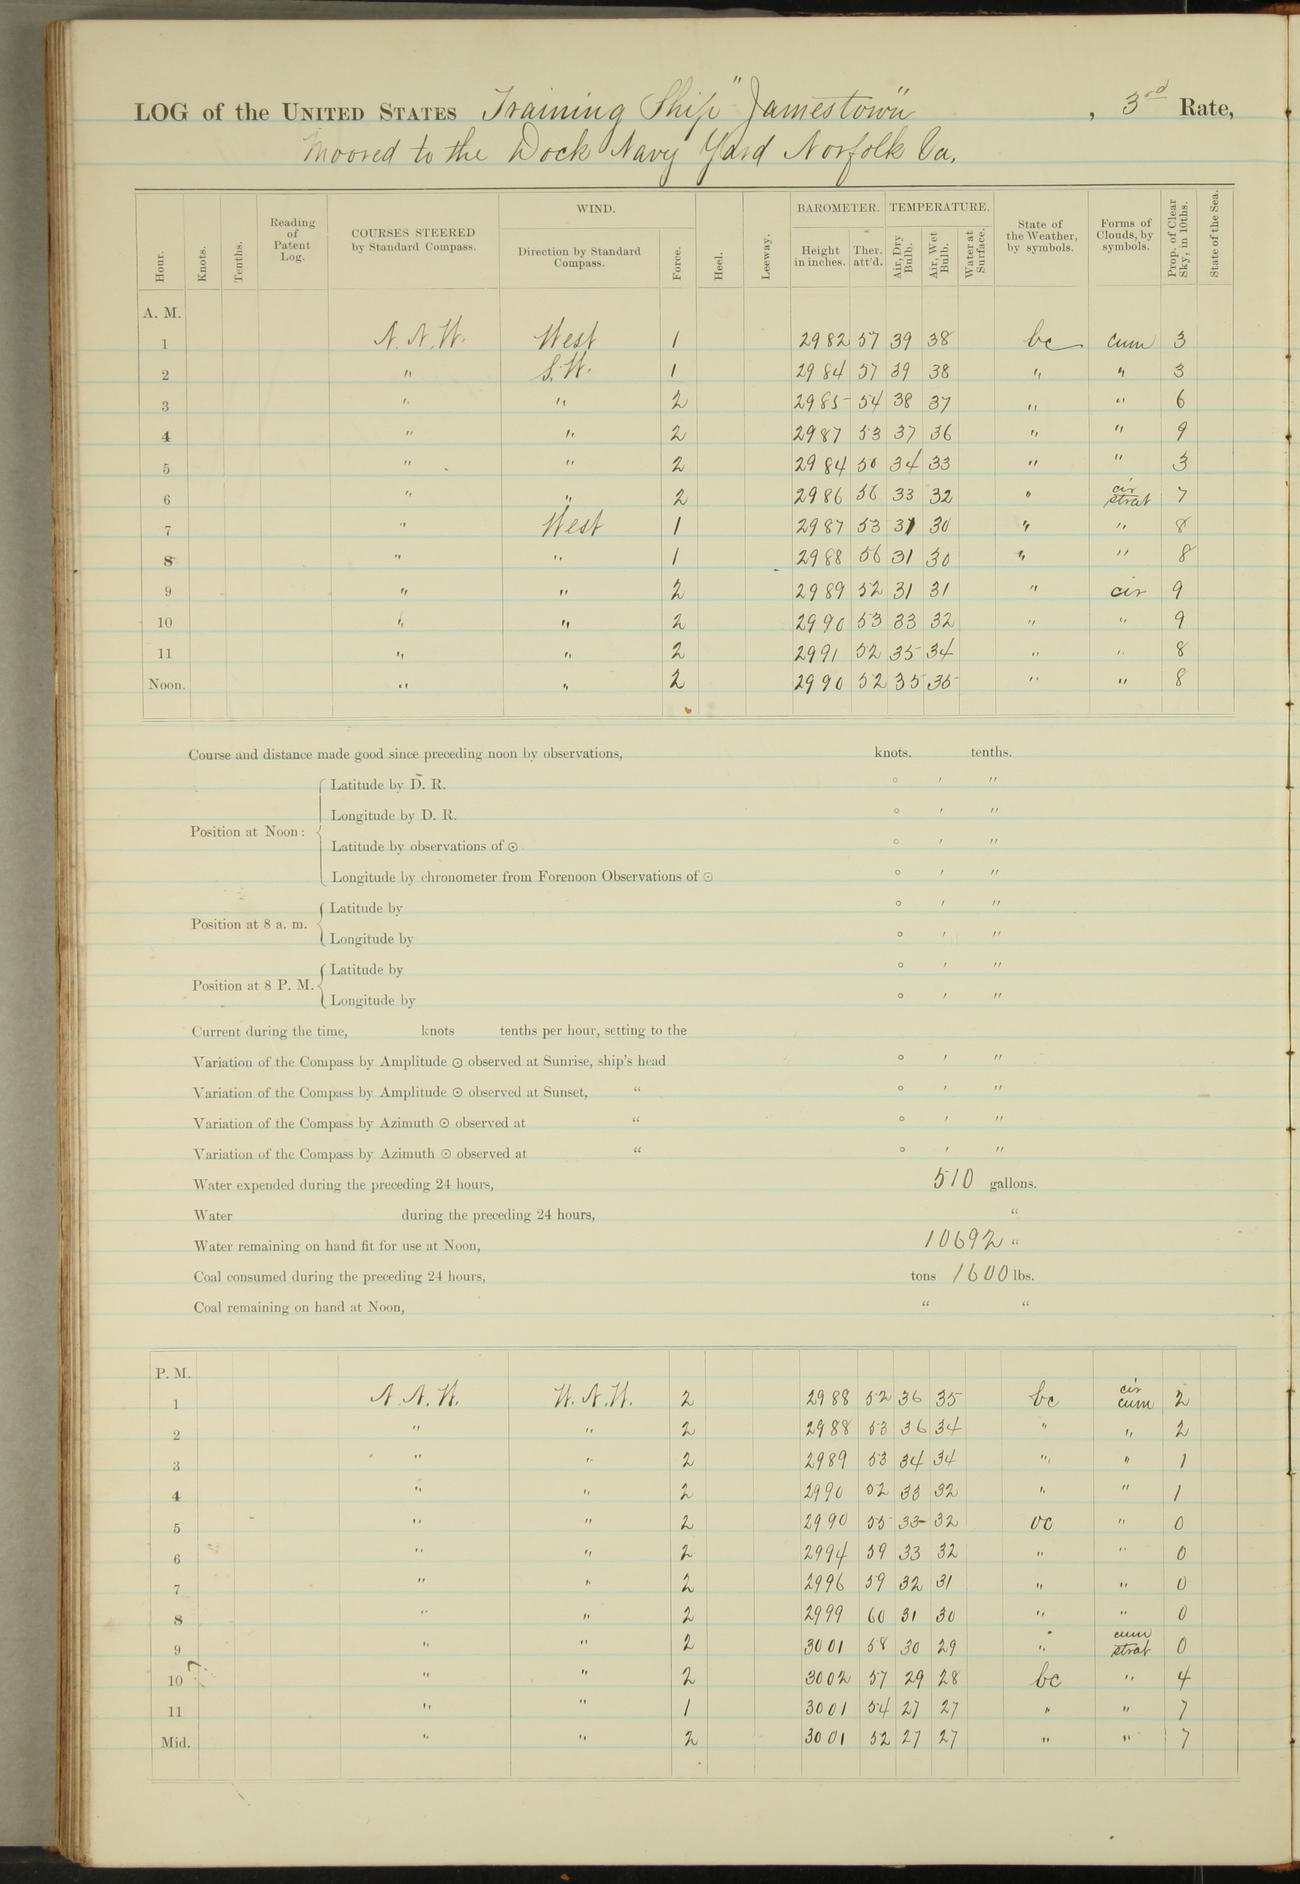 LOG of the UNITED STATES Training Ship "Jamestown", 3rd Rate,
Moored to the Dock Navy Yard Norfolk Va.
Hour. Knots. Tenths. Reading of Patent Log. COURSES STEERED by Standard Compass. WIND. Direction by Standard Compass. Force. Heel. Leeway. BAROMETER. Height in inches. Ther. att'd. TEMPERATURE. Air, Dry Bulb. Air, Wet Bulb. Water at Surface. State of the Weather, by symbols. Forms of Clouds, by symbols. Prop. of Clear Sky, in 10ths. State of the Sea.
A. M.
1 N.N.W. West 1 29 82 57 39 38 bc cum 3
2 " S.W. 1 29 84 57 39 38 " " 3
3 " " 2 29 85 54 38 37 " " 6
4 " " 2 29 87 53 37 36 " " 9
5 " " 2 29 84 50 34 33 " " 3
6 " " 2 29 86 56 33 32 " cir strat 7
7 " West 1 29 87 53 31 30 " " 8
8 " " 1 29 88 56 31 30 " " 8
9 " " 2 29 89 52 31 31 " cir 9
10 " " 2 29 90 53 33 32 " " 9
11 " " 2 29 91 52 35 34 " " 8
Noon. " " 2 29 90 52 35 35 " " 8
Course and distance made good since preceding noon by observations, knots. tenths.
Position at Noon:
Latitude by D. R. ° ′ ″
Longitude by D. R. ° ′ ″
Latitude by observations of ☉ ° ′ ″
Longitude by chronometer from Forenoon Observations of ☉ ° ′ ″
Position at 8 a. m.
Latitude by ° ′ ″
Longitude by ° ′ ″
Position at 8 P. M.
Latitude by ° ′ ″
Longitude by ° ′ ″
Current during the time, knots tenths per hour, setting to the
Variation of the Compass by Amplitude ☉ observed at Sunrise, ship's head ° ′ ″
Variation of the Compass by Amplitude ☉ observed at Sunset, " ° ′ ″
Variation of the Compass by Azimuth ☉ observed at " ° ′ ″
Variation of the Compass by Azimuth ☉ observed at " ° ′ ″
Water expended during the preceding 24 hours, 510 gallons.
Water during the preceding 24 hours, "
Water remaining on hand fit for use at Noon, 10692 "
Coal consumed during the preceding 24 hours, tons 1600 lbs.
Coal remaining on hand at Noon, " "
P. M.
1 N.N.W. W.N.W. 2 29 88 52 36 35 bc cir cum 2
2 " " 2 29 88 53 36 34 " " 2
3 " " 2 29 89 53 34 34 " " 1
4 " " 2 29 90 52 33 32 " " 1
5 " " 2 29 90 55 33 32 oc " 0
6 " " 2 29 94 59 33 32 " " 0
7 " " 2 29 96 59 32 31 " " 0
8 " " 2 29 99 60 31 30 " " 0
9 " " 2 30 01 58 30 29 " cum strat 0
10 " " 2 30 02 57 29 28 bc " 4
11 " " 1 30 01 54 27 27 " " 7
Mid. " " 2 30 01 52 27 27 " " 7